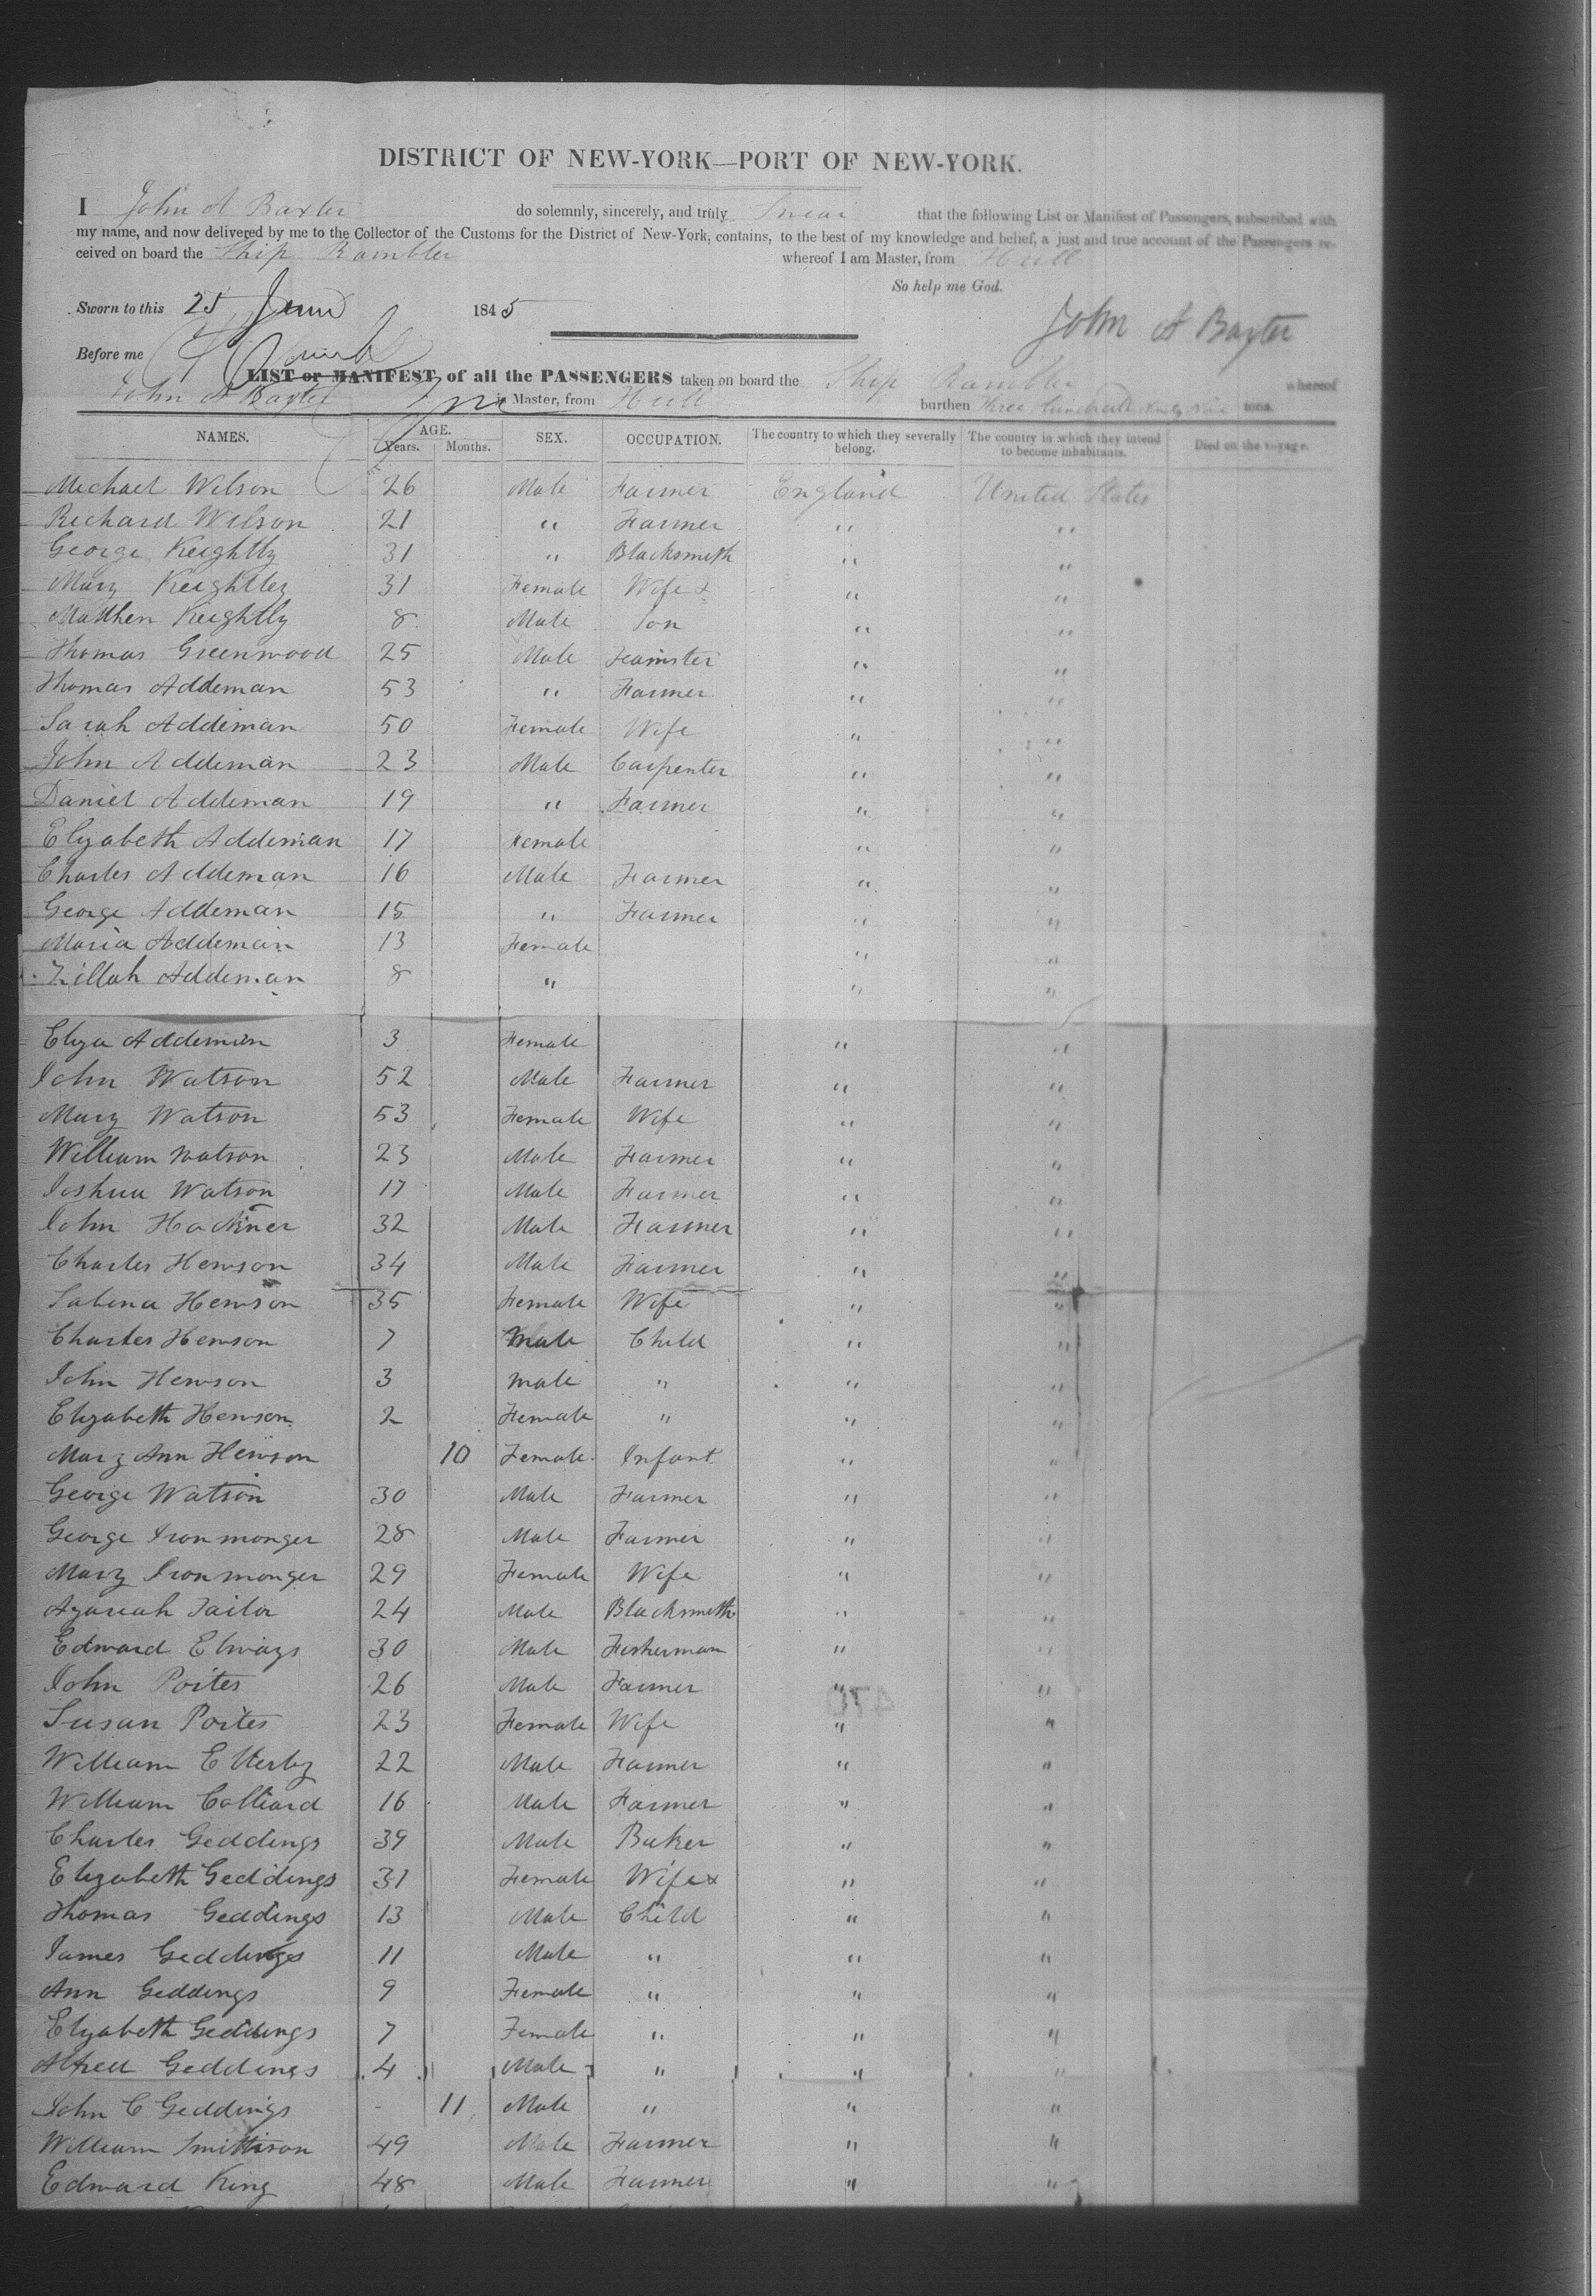 DISTRICT OF NEW-YORK—PORT OF NEW-YORK.
I John A Baxter do solemnly, sincerely, and truly Swear that the following List or Manifest of Passengers, subscribed with
my name, and now delivered by me to the Collector of the Customs for the District of New-York, contains, to the best of my knowledge and belief, a just and true account of the Passengers re-
ceived on board the Ship Rambler whereof I am Master, from Hull
So help me God.
Sworn to this 25 June 1845
John A Baxter
Before me
LIST or MANIFEST of all the PASSENGERS taken on board the Ship Rambler whereof
John A Baxter is Master, from Hull burthen Three hundred Ninety Nine tons.
NAMES. AGE. Years. Months. SEX. OCCUPATION. The country to which they severally belong. The country in which they intend to become inhabitants. Died on the voyage.
Michael Wilson 26 Male Farmer England United States
Richard Wilson 21 " Farmer " "
George Keightly 31 " Blacksmith " "
Mary Keightley 31 Female Wife + " "
Matthew Keightly 8 Male Son " "
Thomas Greenwood 25 Male Teamster " "
Thomas Addeman 53 " Farmer " "
Sarah Addeman 50 Female Wife " "
John Addeman 23 Male Carpenter " "
Daniel Addeman 19 " Farmer " "
Elizabeth Addeman 17 Female " "
Charles Addeman 16 Male Farmer " "
George Addeman 15 " Farmer " "
Maria Addeman 13 Female " "
Zillah Addeman 8 " " "
Eliza Addeman 3 Female " "
John Watson 52 Male Farmer " "
Mary Watson 53 Female Wife " "
William Watson 23 Male Farmer " "
Joshua Watson 17 Male Farmer " "
John 32 Male Farmer " "
Charles Hewson 34 Male Farmer " "
Sabina Hewson 35 Female Wife " "
Charles Hewson 7 Male Child " "
John Hewson 3 male " " "
Elizabeth Hewson 2 Female " " "
Mary Ann Hewson 10 Female Infant " "
George Watson 30 Male Farmer " "
George Ironmonger 28 Male Farmer " "
Mary Ironmonger 29 Female Wife " "
Azariah Tailor 24 Male Blacksmith " "
Edward Elways 30 Male Fisherman " "
John Poites 26 Male Farmer " "
Susan Poites 23 Female Wife " "
William Etterby 22 Male Farmer " "
William Colliard 16 Male Farmer " "
Charles Geddings 39 Male Baker " "
Elizabeth Geddings 31 Female Wife + " "
Thomas Geddings 13 Male Child " "
James Geddings 11 Male " " "
Ann Geddings 9 Female " " "
Elizabeth Geddings 7 Female " " "
Alfred Geddings 4 Male " " "
John C Geddings - 11 Male " " "
William Smithson 49 Male Farmer " "
Edward King 48 Male Farmer " "